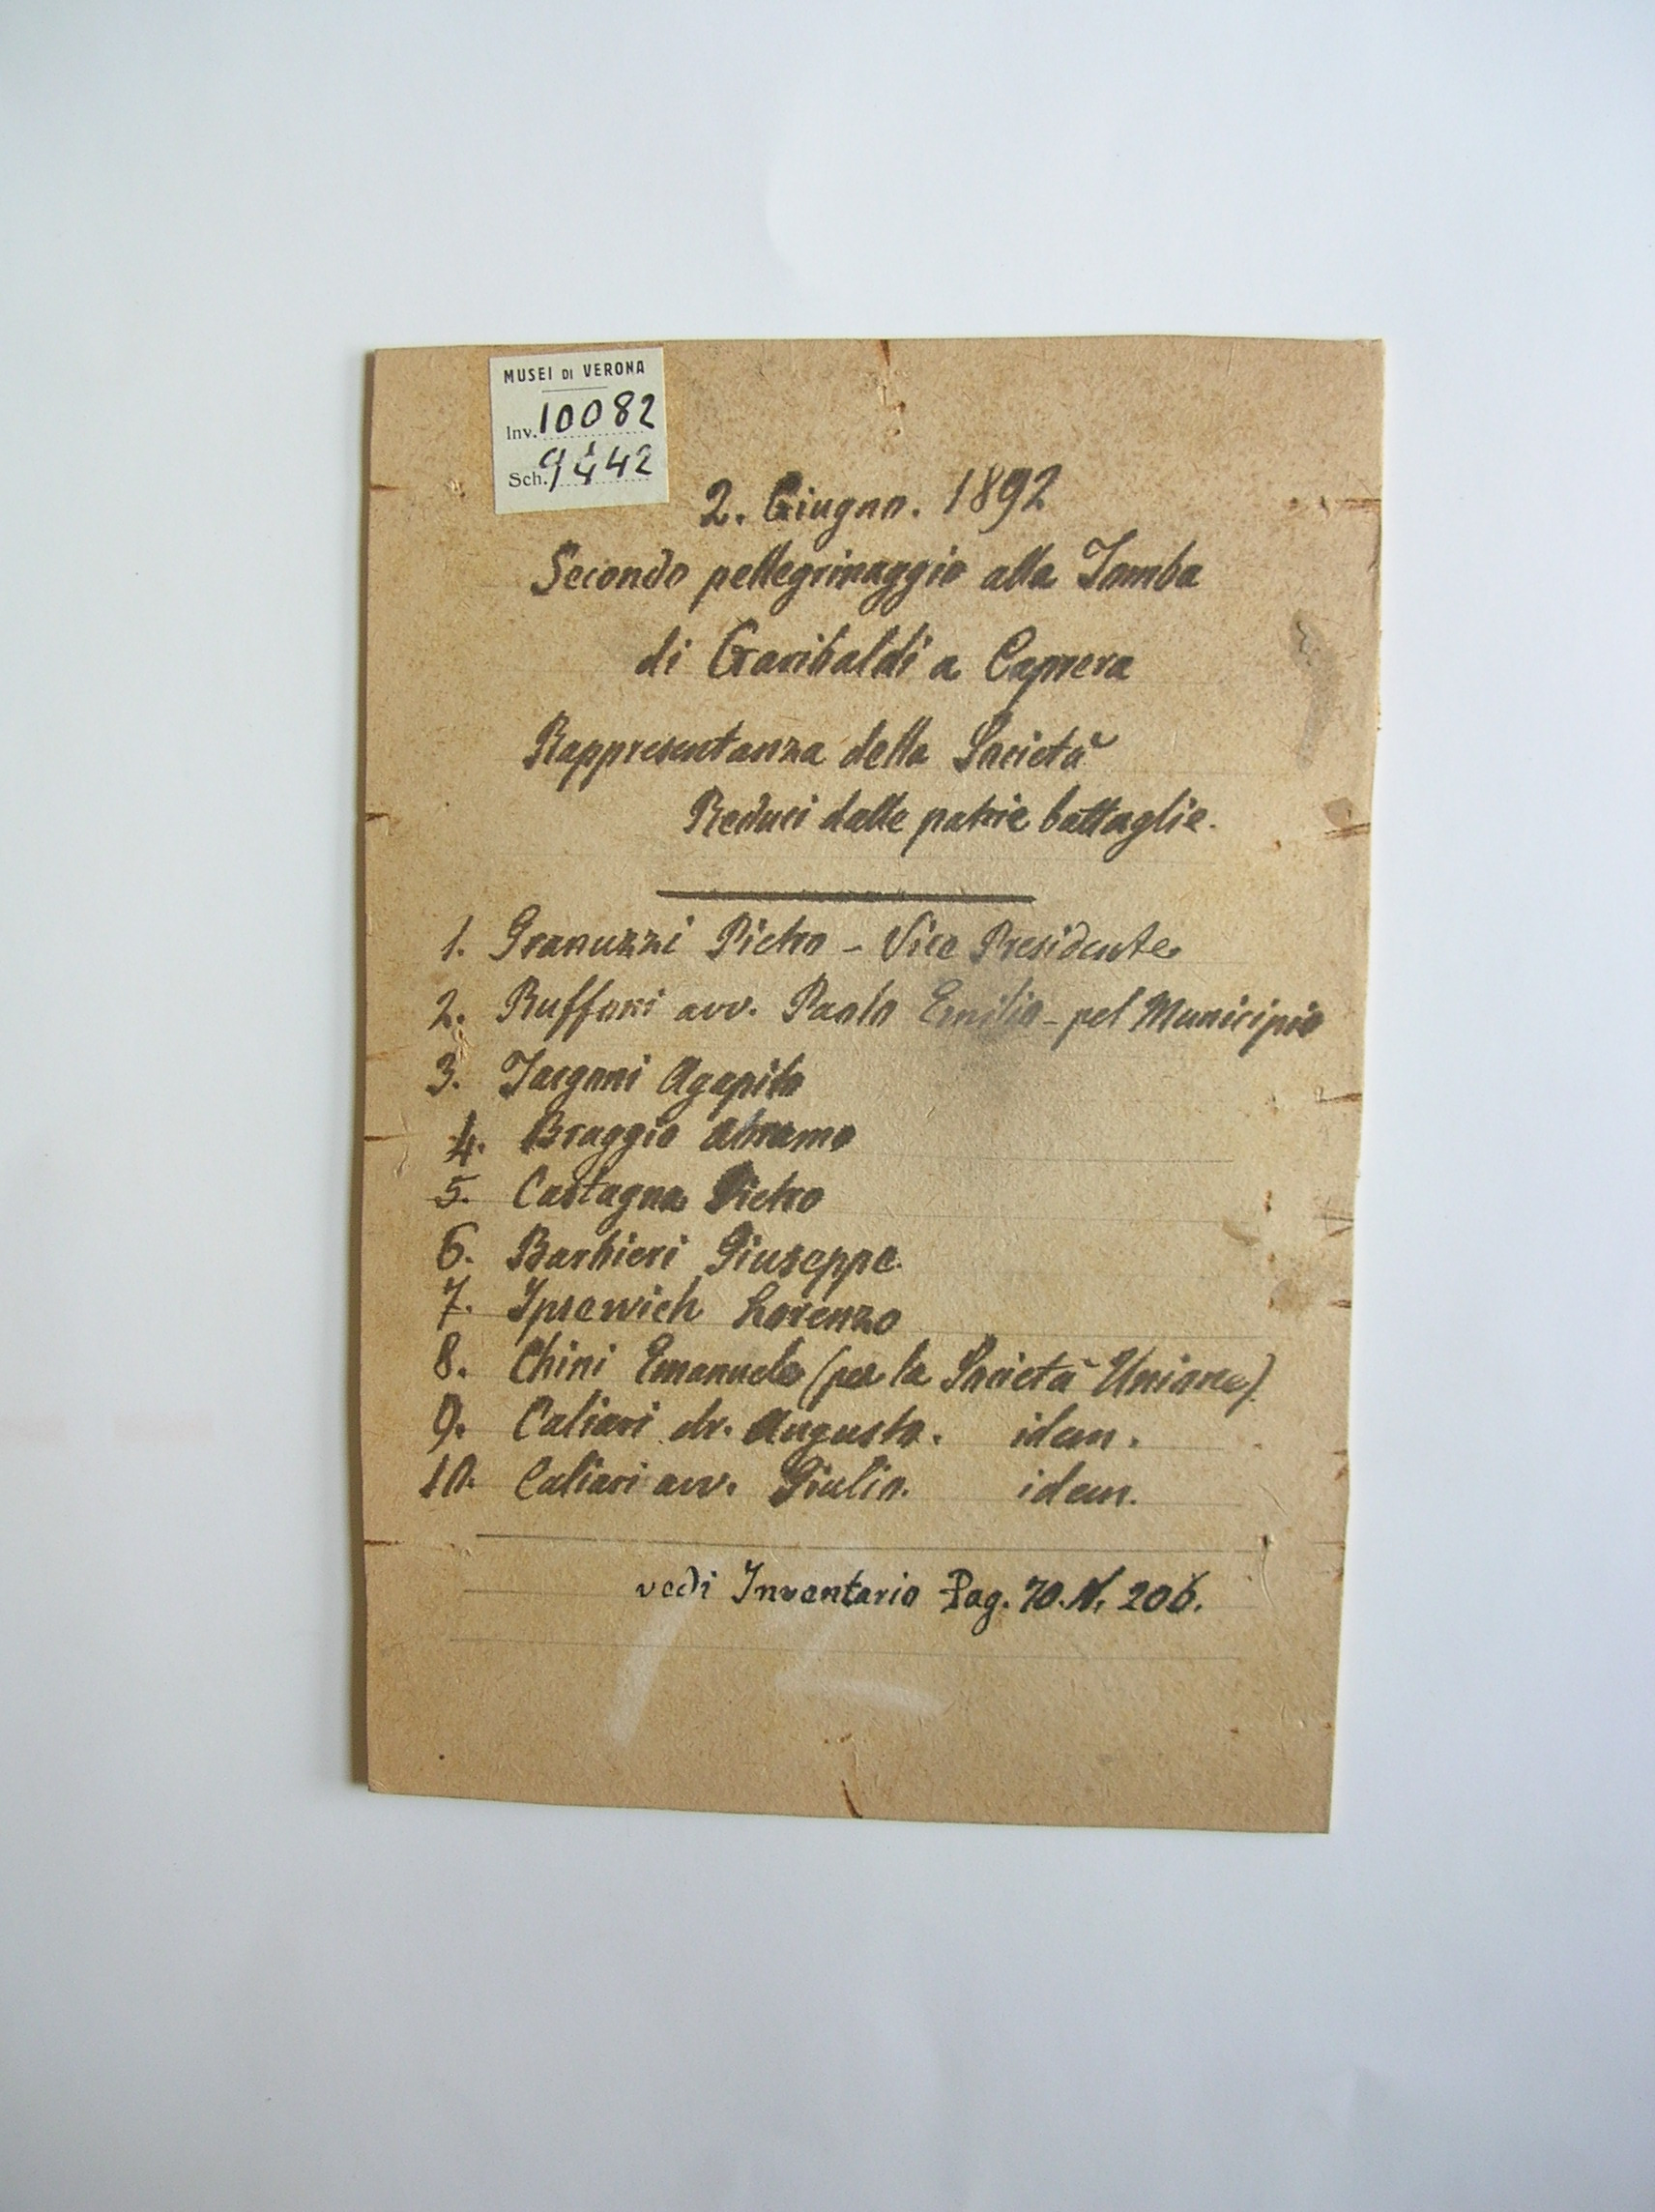 MUSEI DI VERONA
Inv. 10082
Sch. 9442
2. Giugno. 1892
Secondo pellegrinaggio alla Tomba
di Garibaldi a Caprera
Rappresentanza della Società
Reduci dalle patrie battaglie.
1. Granuzzi Pietro - Vice Presidente
2. Ruffoni avv. Paolo Emilio - pel Municipio
3. Targoni Agapito
4. Braggio Abramo
5. Castagna Pietro
6. Barbieri Giuseppe
7. Ipsewich Lorenzo
8. Chini Emanuele (per la Società Unione)
9. Caliari dr. Augusto. idem.
10. Caliari avv. Giulio. idem.
vedi Inventario Pag. 70. N. 206.